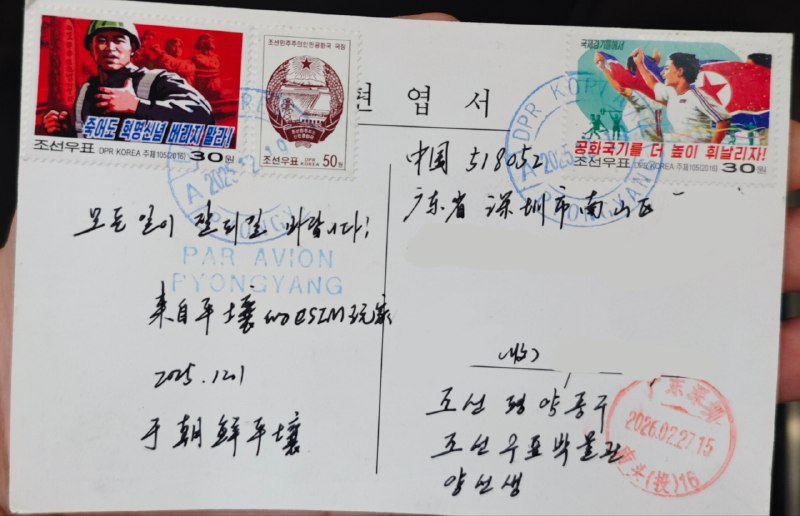 죽어도 혁명신념 버리지 말라!
조선우표 DPR KOREA 주체105(2016) 30원
조선민주주의인민공화국 국장
조선우표 DPR KOREA 50원
국제경기들에서
공화국기를 더 높이 휘날리자!
조선우표 DPR KOREA 주체105(2016) 30원
편 엽 서
DPR KOREA
A 2025
PYONGYANG
中国 518052
广东省深圳市南山区
모든 일이 잘 되길 바랍니다!
PAR AVION
PYONGYANG
来自平壤的ESIM玩家
2025.12.1
于朝鲜平壤
(收)
조선 평양 중구
조선우표박물관
양선생
2026.02.27.15
(投)16